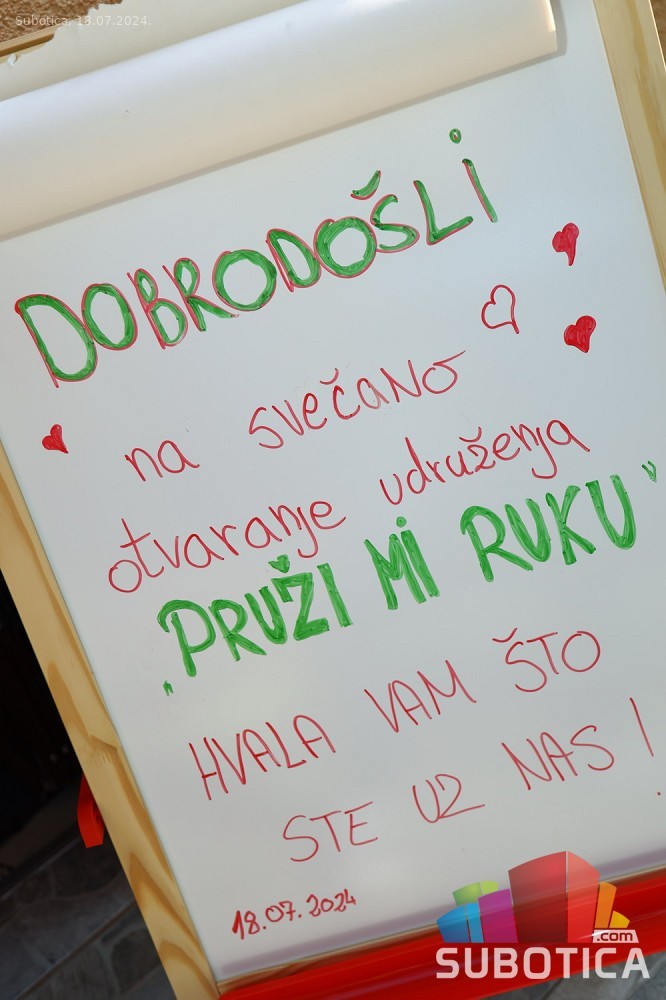 Subotica, 13.07.2024.
DOBRODOŠLI
na svečano
otvaranje udruženja
„PRUŽI MI RUKU”
HVALA VAM ŠTO
STE UZ NAS!
18.07.2024
.com
SUBOTICA